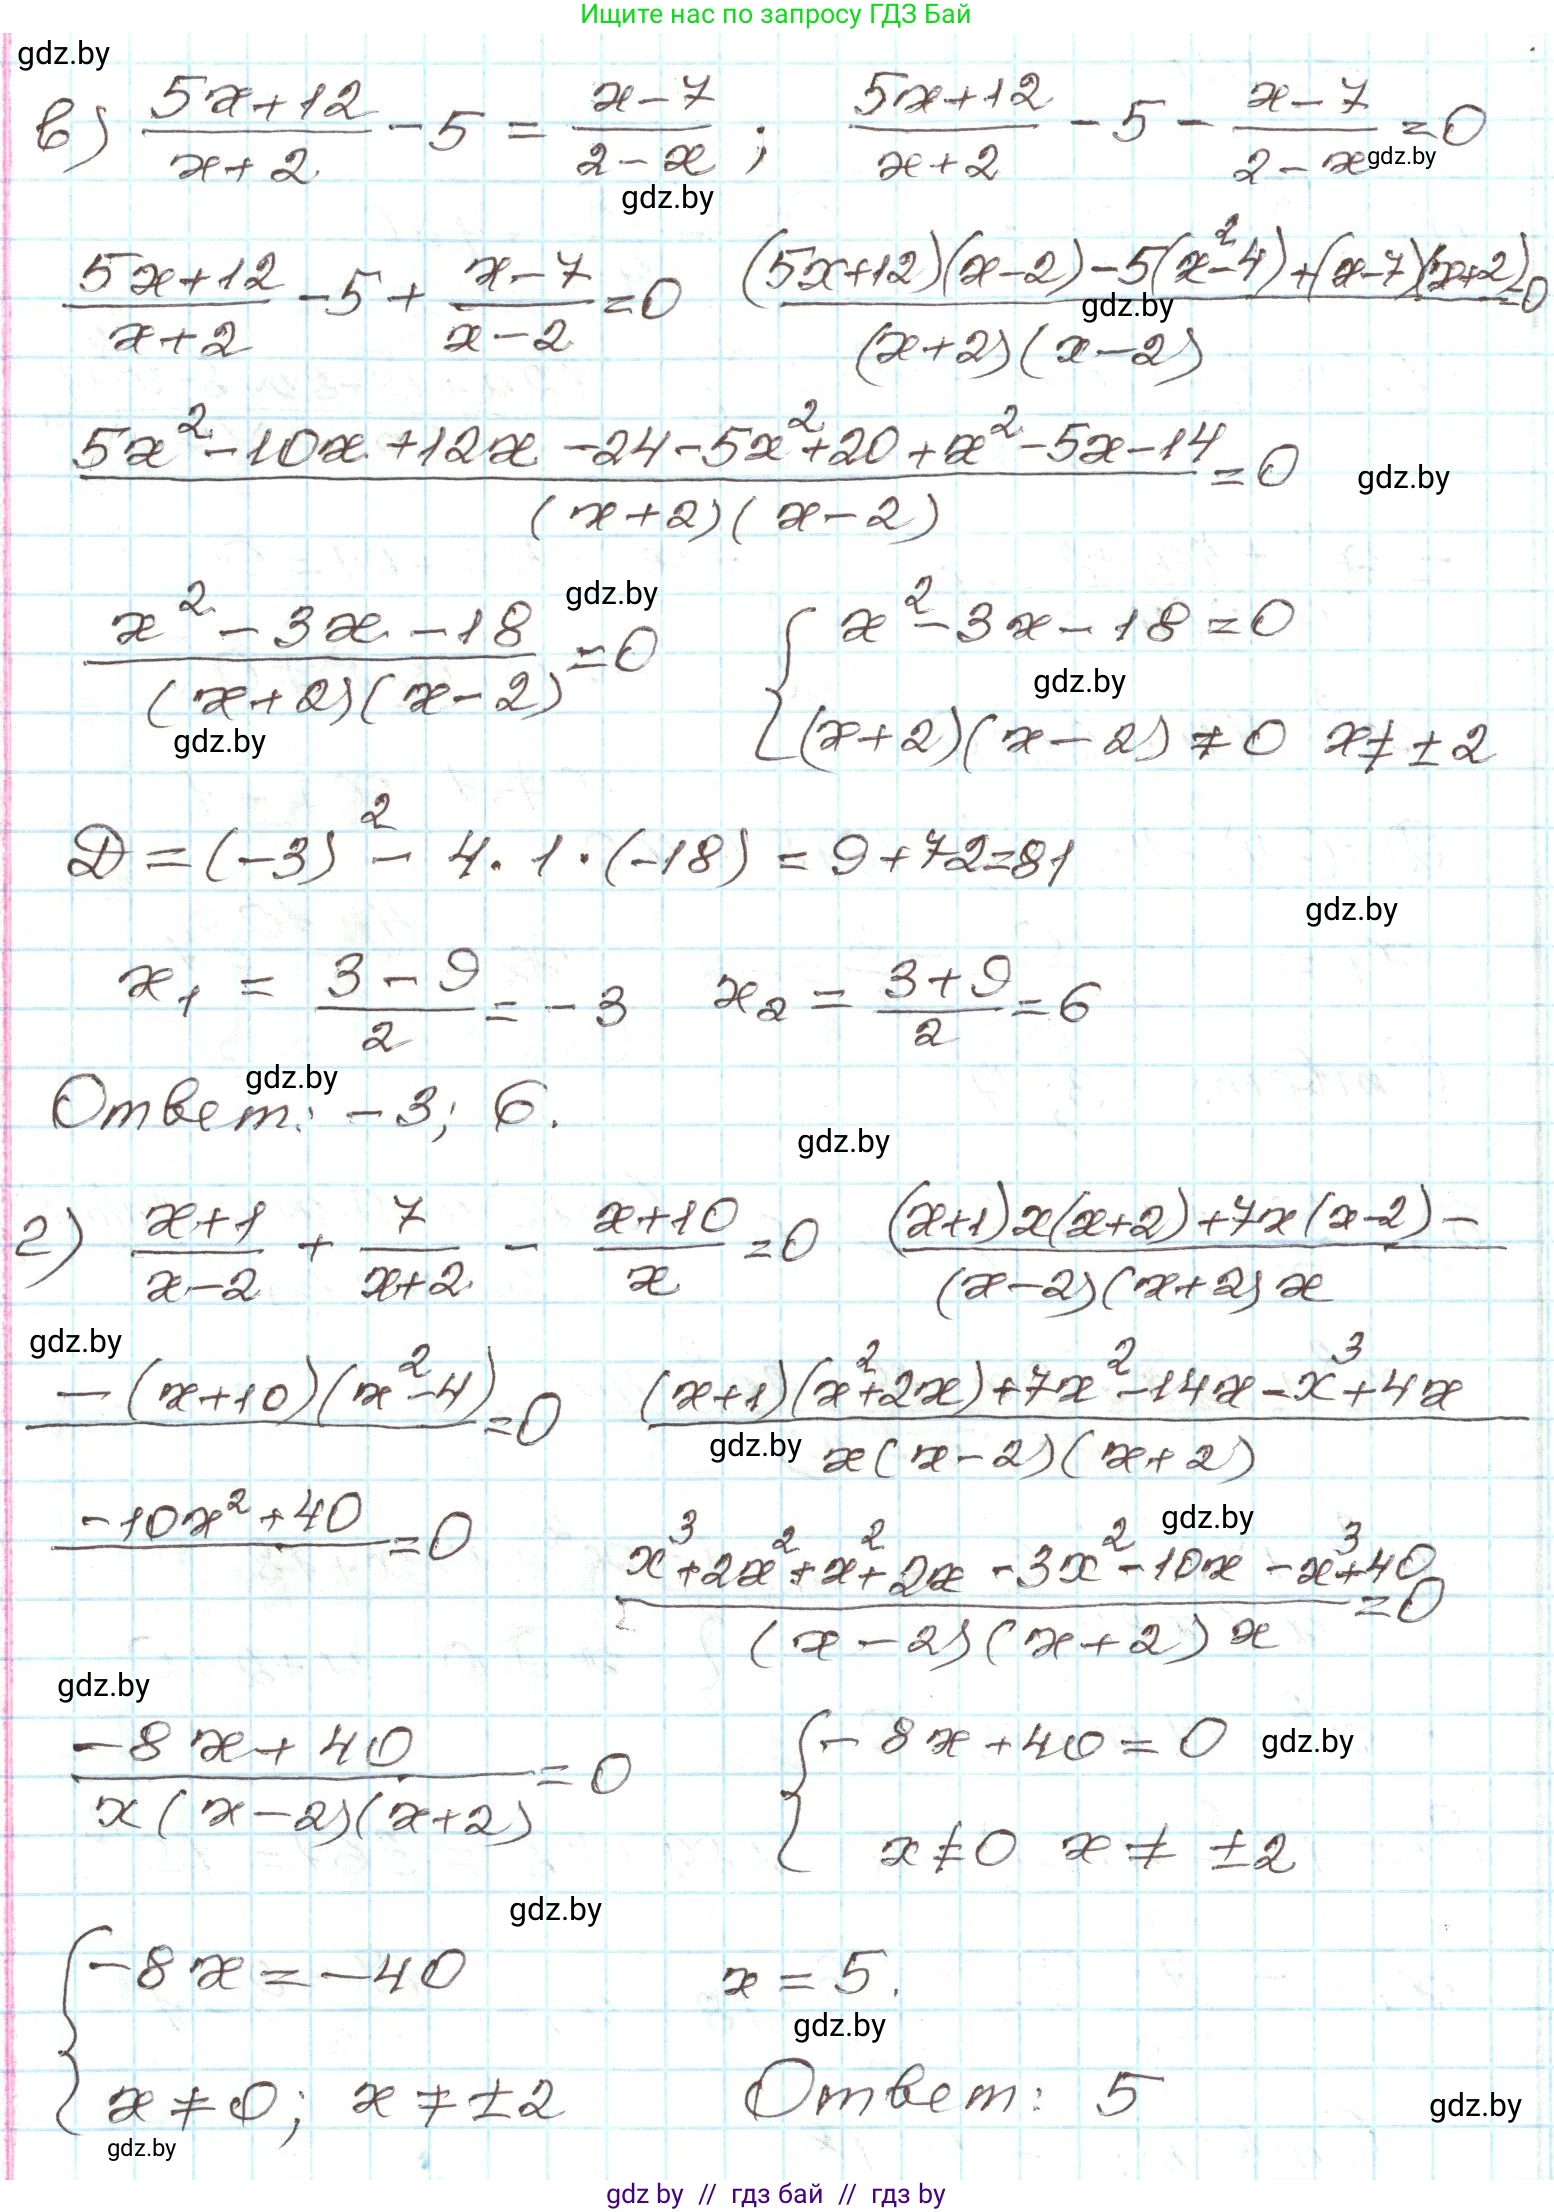 Ищите нас по запросу ГДЗ Бай
gdz.by
в) (5x+12)/(x+2) - 5 = (x-7)/(2-x) ; (5x+12)/(x+2) - 5 - (x-7)/(2-x) = 0
gdz.by
gdz.by
(5x+12)/(x+2) - 5 + (x-7)/(x-2) = 0 ((5x+12)(x-2) - 5(x²-4) + (x-7)(x+2))/((x+2)(x-2)) = 0
gdz.by
(5x² - 10x + 12x - 24 - 5x² + 20 + x² - 5x - 14)/((x+2)(x-2)) = 0
gdz.by
gdz.by
(x² - 3x - 18)/((x+2)(x-2)) = 0 { x² - 3x - 18 = 0
gdz.by
(x+2)(x-2) ≠ 0 x ≠ ±2
gdz.by
D = (-3)² - 4·1·(-18) = 9+72=81
gdz.by
x₁ = (3-9)/2 = -3 x₂ = (3+9)/2 = 6
gdz.by
Ответ: -3; 6.
gdz.by
г) (x+1)/(x-2) + 7/(x+2) - (x+10)/x = 0 ((x+1)x(x+2) + 7x(x-2) -)/((x-2)(x+2)x)
gdz.by
(-(x+10)(x²-4)) = 0 ((x+1)(x²+2x) + 7x² - 14x - x³ + 4x)/(x(x-2)(x+2))
gdz.by
(-10x² + 40) = 0 (x³ + 2x² + x² + 2x - 3x² - 10x - x³ + 40)/((x-2)(x+2)x) = 0
gdz.by
gdz.by
(-8x + 40)/(x(x-2)(x+2)) = 0 { -8x + 40 = 0
gdz.by
x ≠ 0 x ≠ ±2
gdz.by
{ -8x = -40 x = 5.
gdz.by
x ≠ 0; x ≠ ±2 Ответ: 5
gdz.by
gdz.by
gdz by // гдз бай // гдз by